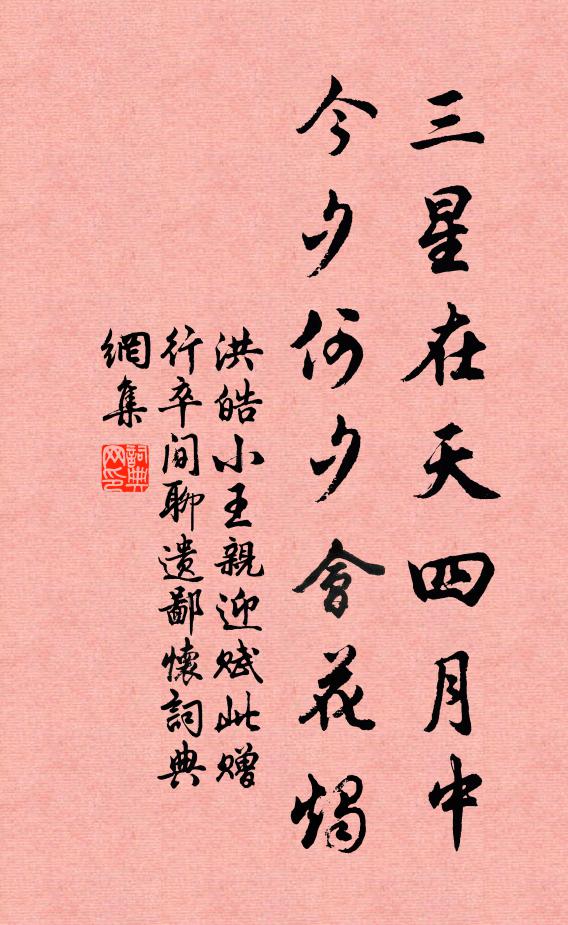 三星在天四月中
今夕何夕會花燭
洪皓小王親迎賦此贈
行卒间聊遗鄙懷詞典
網集
詞典
网印